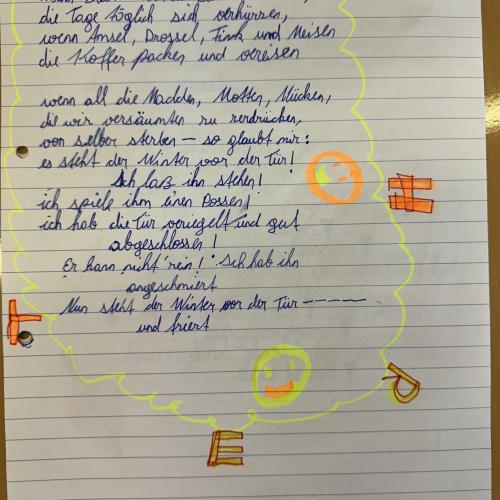 die Tage täglich sich verkürzen,
wenn Amsel, Drossel, Fink und Meisen
die Koffer packen und vereisen
wenn all die Madden, Motten, Mücken,
die wir versäumten zu zerdrücken,
von selber sterben – so glaubt mir:
es steht der Winter vor der Tür!
Ich laß ihn stehen!
ich spiele ihm einen Possen!
ich hab die Tür verriegelt und gut
abgeschlossen!
Er kann nicht 'rein! Ich hab ihn
angeschmiert
Nun steht der Winter vor der Tür –––––
und friert
T
E